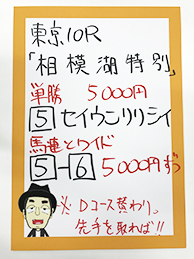 東京10R
「相模湖特別」
単勝 5000円
5 セイウンリリシイ
馬連とワイド
5-6 5000円ずつ
※Dコース替わり。
先手を取れば!!